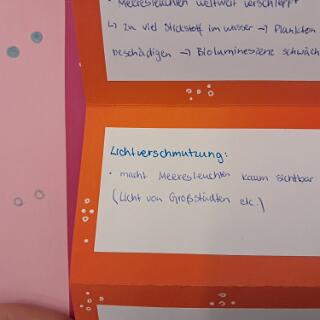 • Meeresleuchten weltweit verschleppt
↳ zu viel Stickstoff im wasser → Plankton
beschädigen → Biolumineszenz schwäch
Lichtverschmutzung:
• macht Meeresleuchten kaum sichtbar
(Licht von Großstädten etc.)